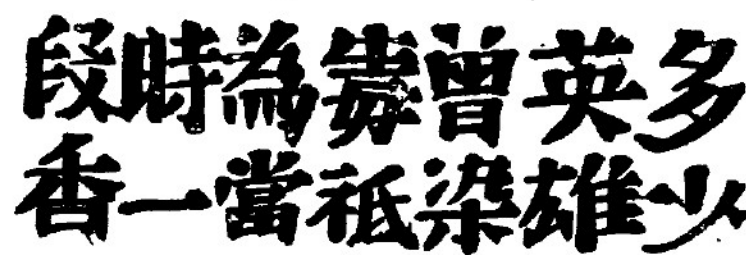 多少
英雄
曾染
祗
為當
時一
段香